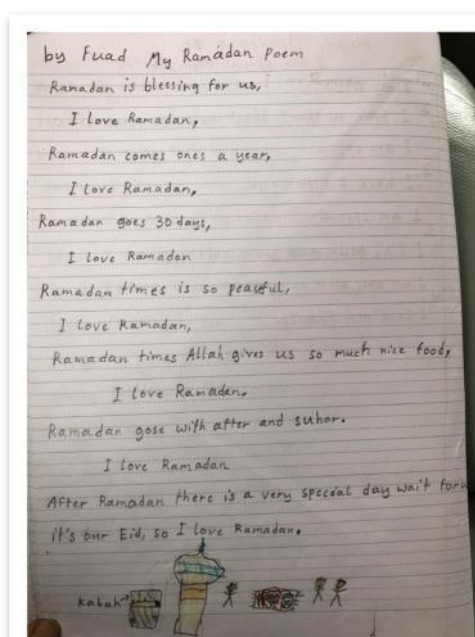 by Fuad My Ramadan Poem
Ramadan is blessing for us,
I love Ramadan,
Ramadan comes ones a year,
I love Ramadan,
Ramadan goes 30 days,
I love Ramadan
Ramadan times is so peaseful,
I love Ramadan,
Ramadan times Allah gives us so much nice food,
I love Ramadan,
Ramadan gose with after and suhar.
I love Ramadan
After Ramadan there is a very specdal day wait for
it's our Eid, so I love Ramadan.
kabah